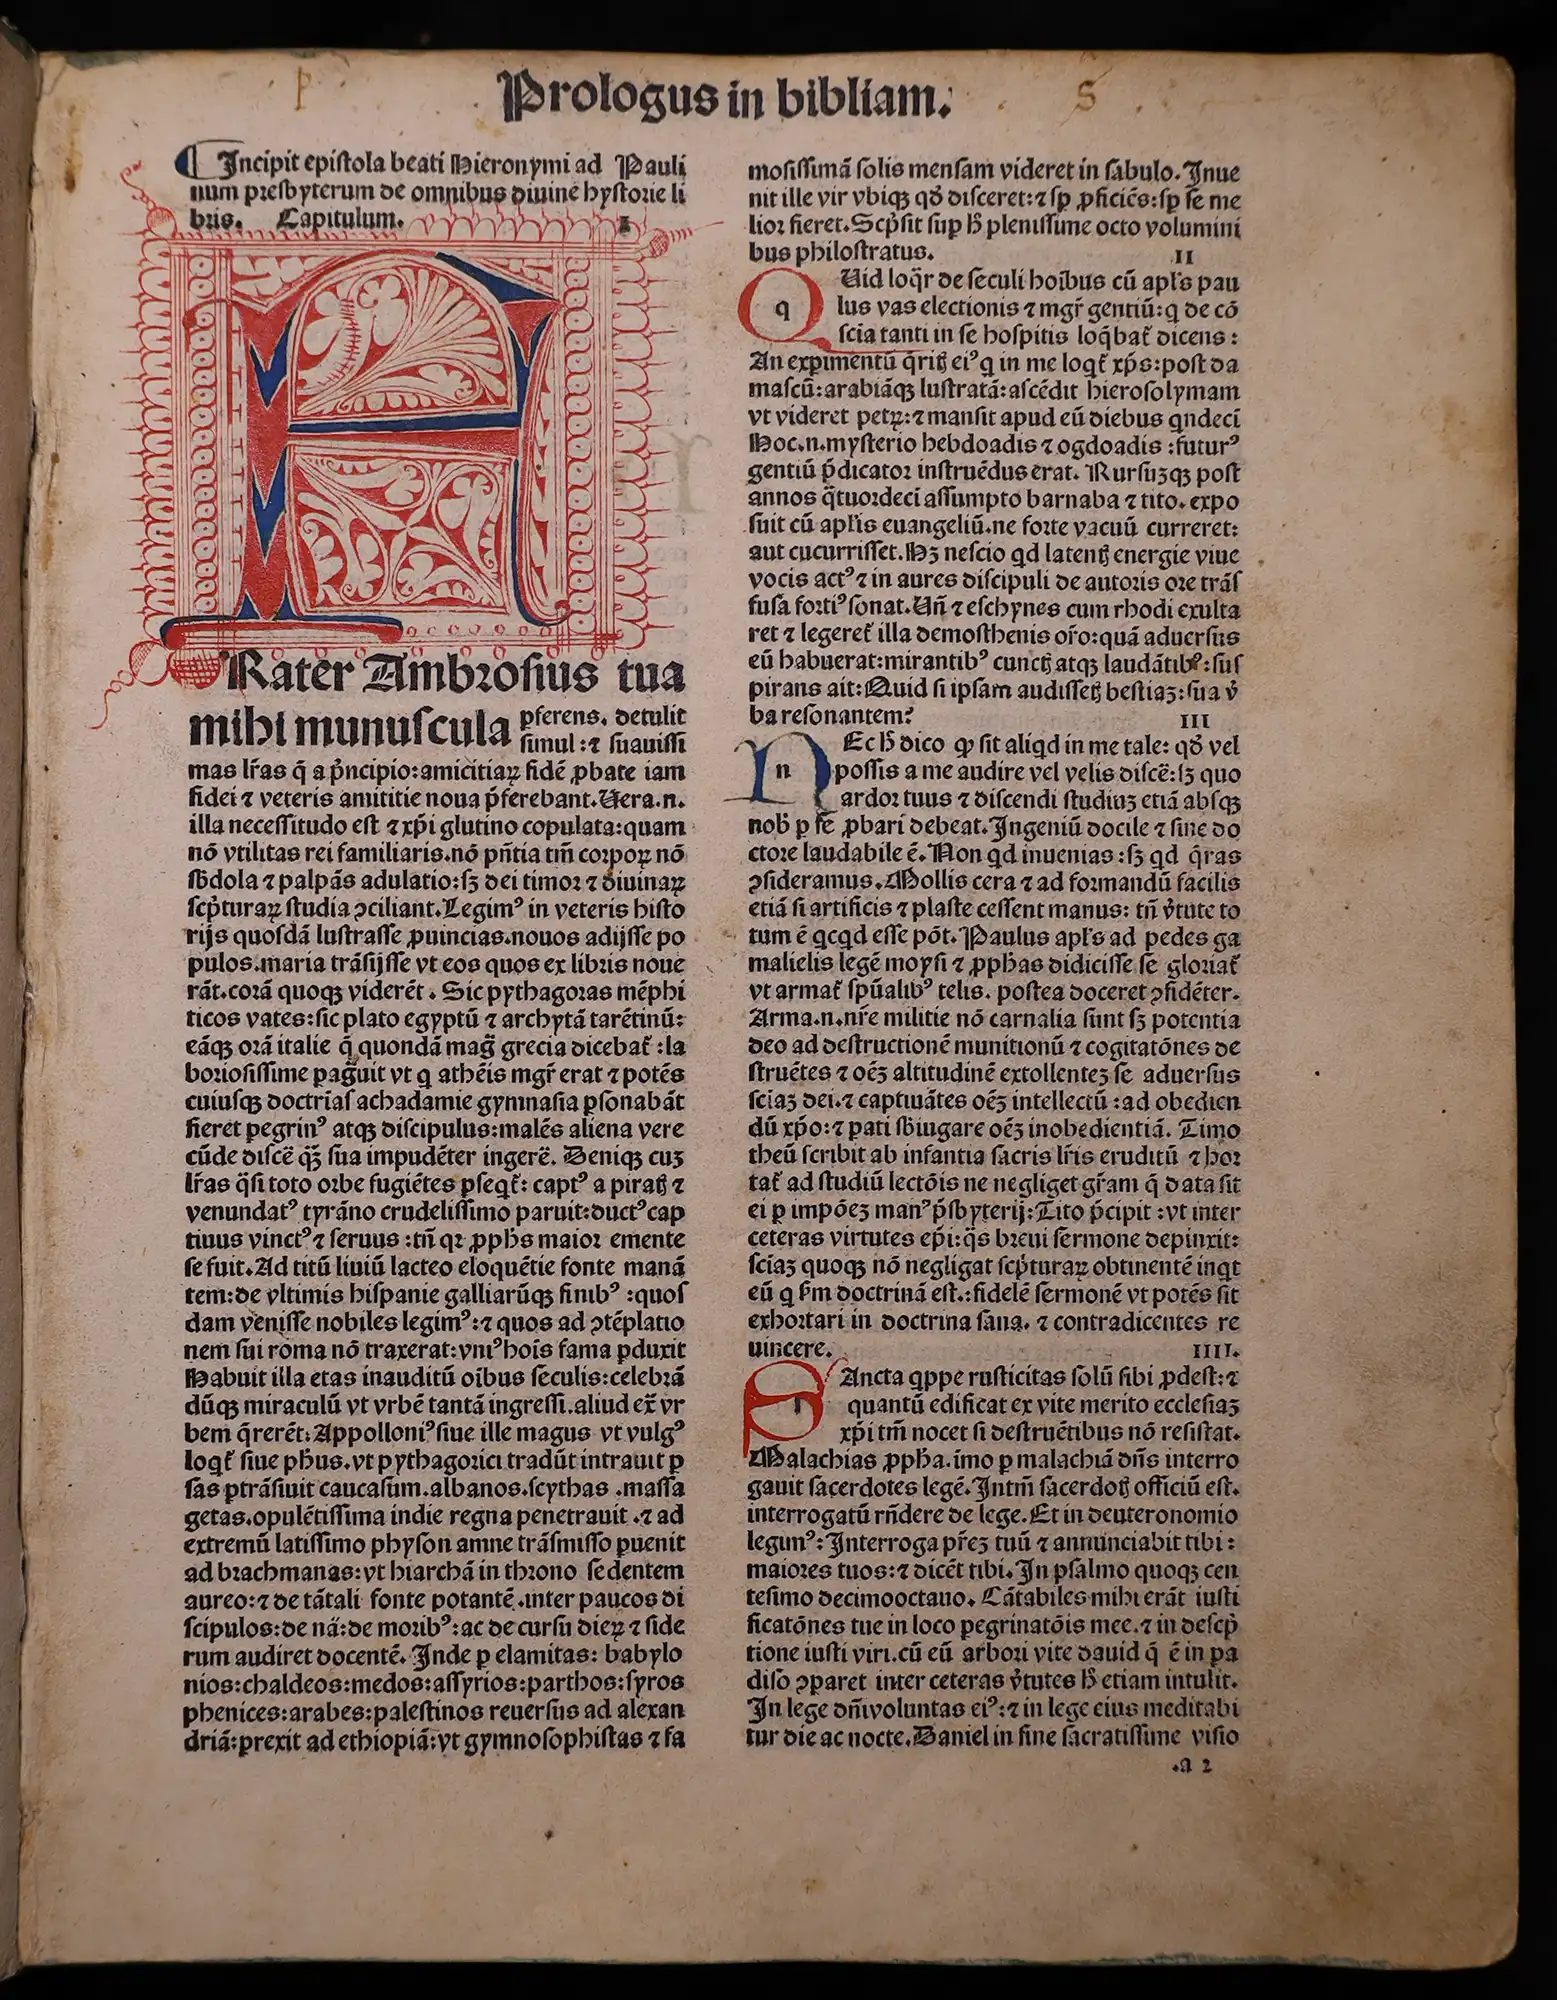 P S
Prologus in bibliam.
¶ Incipit epistola beati Hieronymi ad Pauli
num presbyterum de omnibus diuine hystorie li
bris. Capitulum. I
F
Rater Ambrosius tua
mihi munuscula ꝑferens. detulit
simul:⁊ suauissi
mas lr̄as q̄ a pͥncipio:amicitiaꝝ fidē ꝓbate iam
fidei ⁊ veteris amititie noua p̄ferebant.Uera.n.
illa necessitudo est ⁊ xp̄i glutino copulata:quam
nō vtilitas rei familiaris.nō pn̄tia tm̄ corpoꝝ nō
sb̄dola ⁊ palpās adulatio:sꝫ dei timor ⁊ diuinaꝝ
scͥpturaꝝ studia ꝯciliant.Legimꝰ in veteris histo
rijs quosdā lustrasse ꝓuincias.nouos adijsse po
pulos.maria trāsijsse vt eos quos ex libris noue
rāt.corā quoqꝫ viderēt. Sic pythagoras mēphi
ticos vates:sic plato egyptū ⁊ archytā tarētinū:
eāqꝫ orā italie q̄ quondā mag̃ grecia dicebat̄ :la
boriosissime ꝑag̃uit vt q athēis mgr̄ erat ⁊ potēs
cuiusqꝫ doctrias̄ achadamie gymnasia ꝑsonabāt
fieret ꝑegrinꝰ atqꝫ discipulus:malēs aliena vere
cūde discē q̄ꝫ sua impudēter ingerē. Deniqꝫ cuꝫ
lr̄as q̄si toto orbe fugiētes ꝑseqt̄: captꝰ a piratꝭ ⁊
venundatꝰ tyrāno crudelissimo paruit:ductꝰ cap
tiuus vinctꝰ ⁊ seruus :tn̄ qꝛ ꝓph̄s maior emente
se fuit.Ad titū liuiū lacteo eloquētie fonte manā
tem:de vltimis hispanie galliarūqꝫ finibꝰ :quos
dam venisse nobiles legimꝰ:⁊ quos ad ꝯtēplatio
nem sui roma nō traxerat:vniꝰ hoīs fama ꝑduxit
Habuit illa etas inauditū oībus seculis:celebrā
dūqꝫ miraculū vt vrbē tantā ingressi.aliud ex̄ vr
bem q̄rerēt:Appolloniꝰ siue ille magus vt vulgꝰ
loqt̄ siue ph̄us.vt pythagorici tradūt intrauit ꝑ
sas ꝑtrāsiuit caucasum.albanos.scythas .massa
getas.opulētissima indie regna penetrauit .⁊ ad
extremū latissimo physon amne trāsmisso ꝑuenit
ad brachmanas:vt hiarchā in throno sedentem
aureo:⁊ de tātali fonte potantē.inter paucos di
scipulos:de nā:de moribꝰ:ac de cursu dieꝝ ⁊ side
rum audiret docentē. Inde ꝑ elamitas: babylo
nios:chaldeos:medos:assyrios:parthos:syros
phenices:arabes:palestinos reuersus ad alexan
driā:ꝑrexit ad ethiopiā:vt gymnosophistas ⁊ fa
mosissimā solis mensam videret in sabulo.Inue
nit ille vir vbiqꝫ qd̄ disceret:⁊ sꝑ ꝓficiēs:sꝑ se me
lior fieret.Scͥpsit suꝑ h̄ plenissime octo volumini
bus philostratus. II
q Uid loq̄r de seculi hoībus cū apl̄s pau
lus vas electionis ⁊ mgr̄ gentiū:q de cō
scia tanti in se hospitis loq̄bat̄ dicens :
An exꝑimentū q̄ritꝭ eiꝰ q in me loqt̄ xp̄s:post da
mascū:arabiāqꝫ lustratā:ascēdit hierosolymam
vt videret petꝝ:⁊ mansit apud eū diebus qndeci
Hoc.n.mysterio hebdoadis ⁊ ogdoadis :futurꝰ
gentiū p̄dicator instruēdus erat. Rursūꝫqꝫ post
annos q̄tuordeci assumpto barnaba ⁊ tito. expo
suit cū apl̄is euangeliū.ne forte vacuū curreret:
aut cucurrisset.Hꝫ nescio qd latentꝭ energie viue
vocis actꝰ ⁊ in aures discipuli de autoris ore trās
fusa fortiꝰ sonat.Un̄ ⁊ eschynes cum rhodi exulta
ret ⁊ legeret̄ illa demosthenis or̄o:quā aduersus
eū habuerat:mirantibꝰ cunctꝭ atqꝫ laudātibꝰ:sus
pirans ait:Quid si ipsam audissetꝭ bestiaꝫ:sua v̄
ba resonantem? III
n Ec h̄ dico ꝙ sit aliqd in me tale: qd̄ vel
possis a me audire vel velis discē:sꝫ quo
ardor tuus ⁊ discendi studiuꝫ etiā absqꝫ
nob̄ ꝑ se ꝓbari debeat.Ingeniū docile ⁊ sine do
ctore laudabile ē. Non qd inuenias :sꝫ qd q̄ras
ꝯsideramus.Mollis cera ⁊ ad formandū facilis
etiā si artificis ⁊ plaste cessent manus: tn̄ v̄tute to
tum ē qcqd esse pōt. Paulus apl̄s ad pedes ga
malielis legē moysi ⁊ ꝓph̄as didicisse se gloriat̄
vt armat̄ spūalibꝰ telis. postea doceret ꝯfidēter.
Arma.n.nr̄e militie nō carnalia sunt sꝫ potentia
deo ad destructionē munitionū ⁊ cogitatōnes de
struētes ⁊ oēꝫ altitudinē extollenteꝫ se aduersus
sciaꝫ dei.⁊ captiuātes oēꝫ intellectū :ad obedien
dū xp̄o:⁊ pati sb̄iugare oēꝫ inobedientiā. Timo
theū scribit ab infantia sacris lr̄is eruditū ⁊ hor
tat̄ ad studiū lectōis ne negliget gr̄am q̄ data sit
ei ꝑ impōeꝫ manꝰ p̄sbyterij:Tito p̄cipit :vt inter
ceteras virtutes ep̄i:q̄s breui sermone depinxit:
sciaꝫ quoqꝫ nō negligat scͥpturaꝝ obtinentē inqt
eū q ẜm doctrinā est.:fidelē sermonē vt potēs sit
exhortari in doctrina sana. ⁊ contradicentes re
uincere. IIII.
Ancta qppe rusticitas solū sibi ꝓdest:⁊
quantū edificat ex vite merito ecclesiaꝫ
xp̄i tm̄ nocet si destruētibus nō resistat.
Malachias ꝓph̄a.imo ꝑ malachiā dn̄s interro
gauit sacerdotes legē.Intm̄ sacerdotꝭ officiū est.
interrogatū rn̄dere de lege.Et in deuteronomio
legimꝰ:Interroga pr̄eꝫ tuū ⁊ annunciabit tibi :
maiores tuos:⁊ dicēt tibi.In psalmo quoqꝫ cen
tesimo decimooctauo. Cātabiles mihi erāt iusti
ficatōnes tue in loco ꝑegrinatōis mee.⁊ in descͥp
tione iusti viri.cū eū arbori vite dauid q̄ ē in pa
diso ꝯparet inter ceteras v̄tutes h̄ etiam intulit.
In lege dn̄i voluntas eiꝰ:⁊ in lege eius meditabi
tur die ac nocte.Daniel in fine sacratissime visio
.a 2